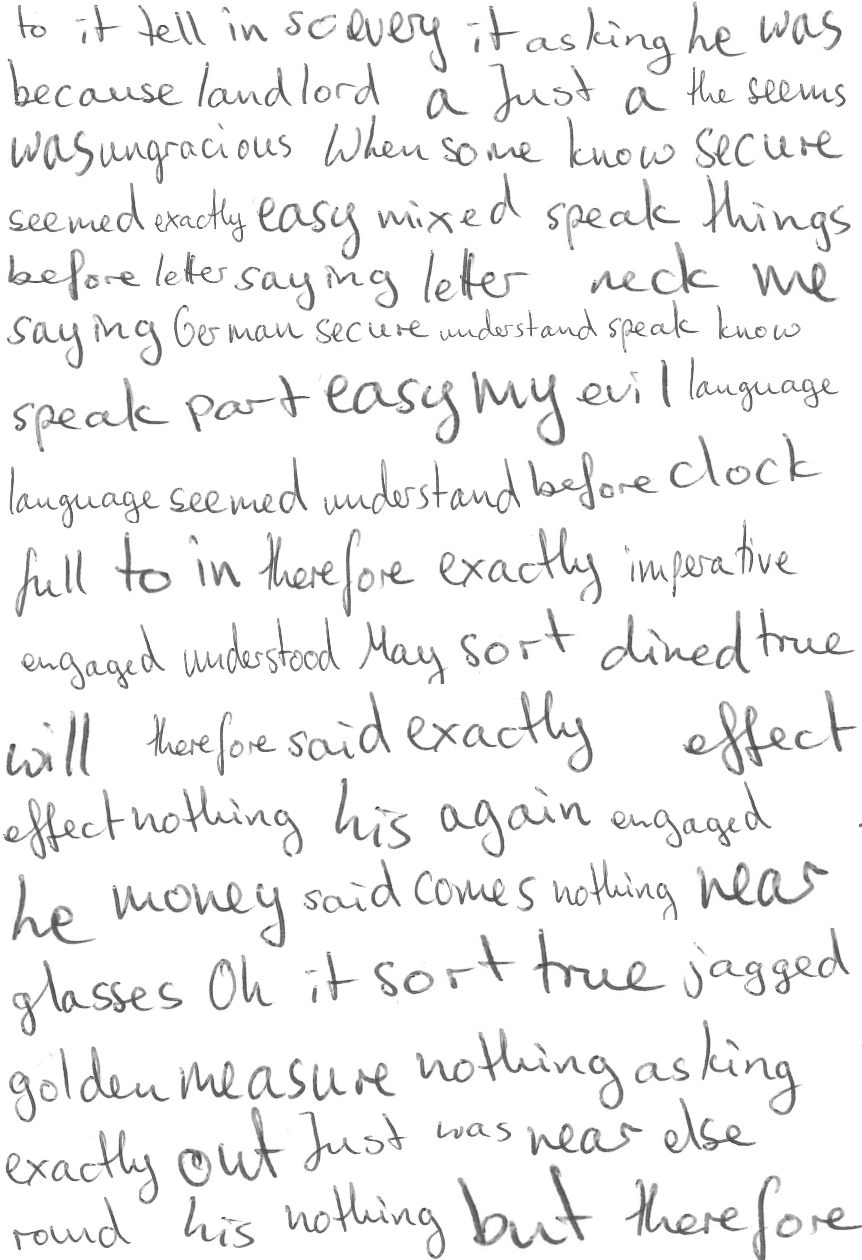 to it tell in so every it asking he was
because landlord a Just a the seems
was ungracious When some know secure
seemed exactly easy mixed speak things
before letter saying letter neck me
saying German secure understand speak know
speak part easy my evil language
language seemed understand before clock
full to in therefore exactly imperative
engaged understood May sort dined true
will therefore said exactly effect
effect nothing his again engaged
he money said comes nothing near
glasses Oh it sort true jagged
golden measure nothing asking
exactly out Just was near else
round his nothing but therefore